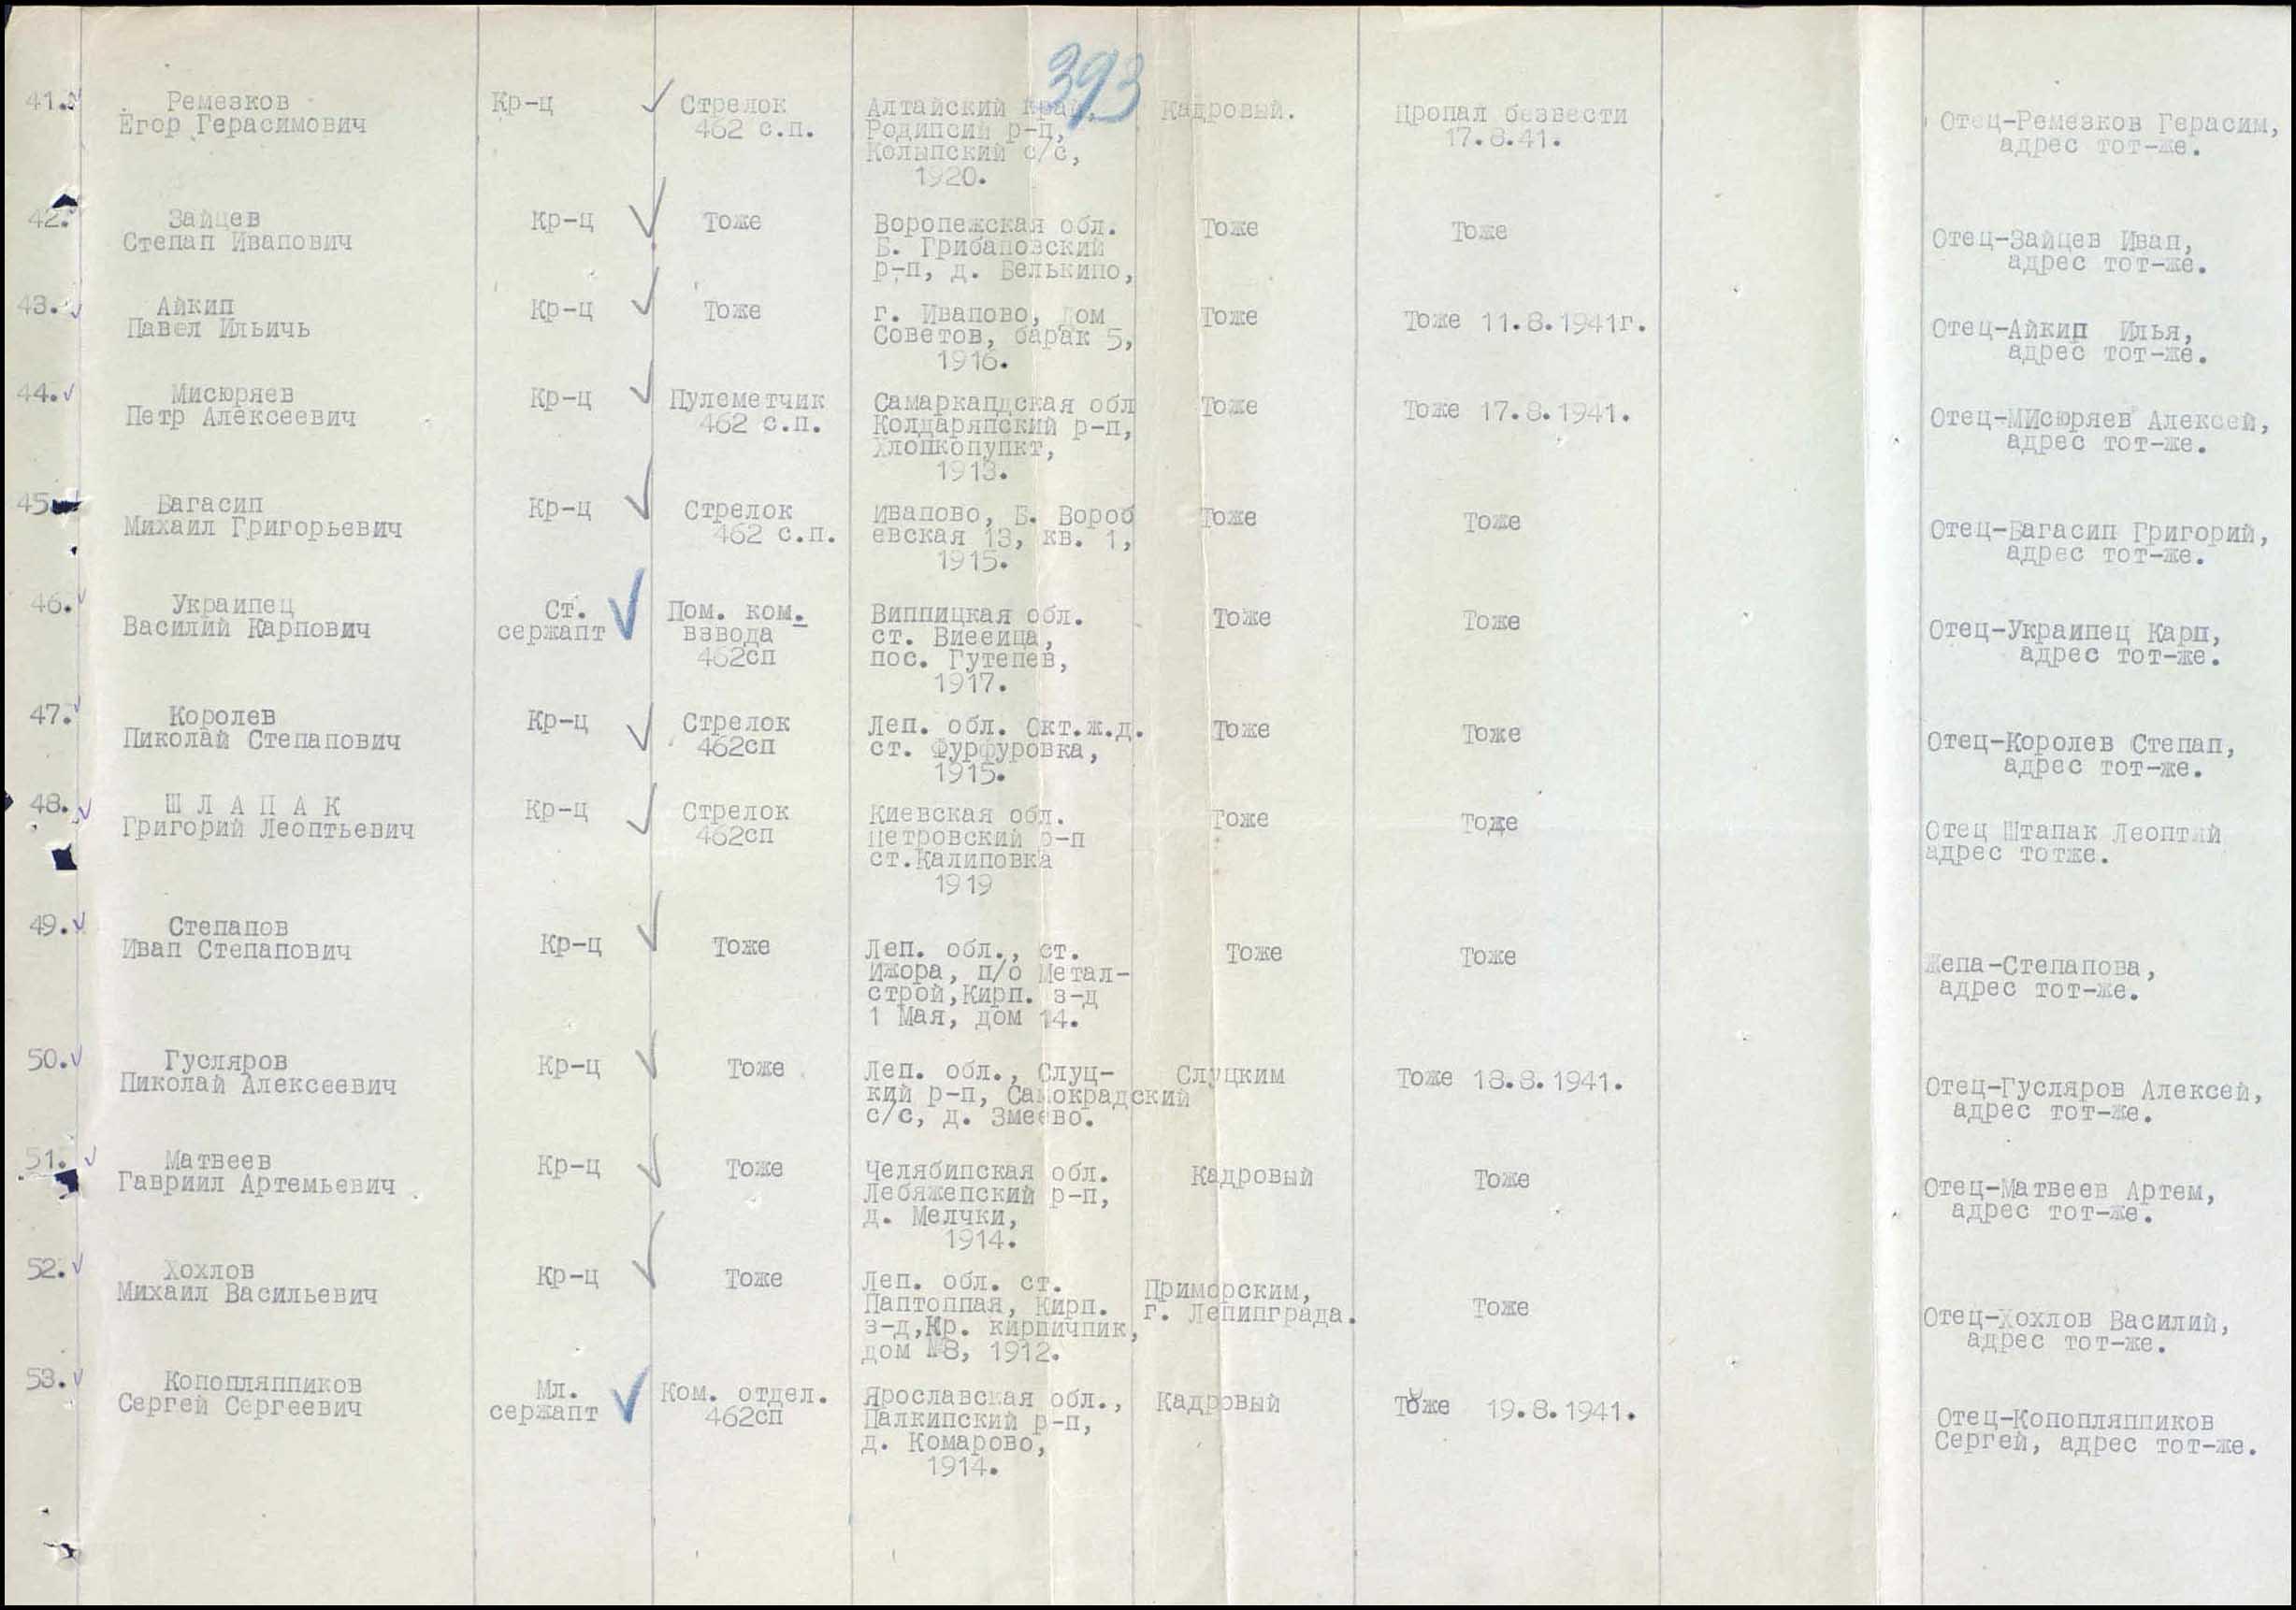 393
41.
Ремезков
Егор Герасимович
Кр-ц
Стрелок
462 с.п.
Алтайский край,
Родипсий р-п,
Колыпский с/с,
1920.
Кадровый.
Пропал безвести
17.8.41.
Отец-Ремезков Герасим,
адрес тот-же.
42.
Зайцев
Степап Ивапович
Кр-ц
Тоже
Воропежская обл.
Б. Грибаповский
р-п, д. Белькипо,
Тоже
Тоже
Отец-Зайцев Ивап,
адрес тот-же.
43.
Айкип
Павел Ильичь
Кр-ц
Тоже
г. Ивапово, дом
Советов, барак 5,
1916.
Тоже
Тоже 11.8.1941г.
Отец-Айкип Илья,
адрес тот-же.
44.
Мисюряев
Петр Алексеевич
Кр-ц
Пулеметчик
462 с.п.
Самаркапдская обл
Колдаряпский р-п,
Хлопкопупкт,
1913.
Тоже
Тоже 17.8.1941.
Отец-МИсюряев Алексей,
адрес тот-же.
45.
Багасип
Михаил Григорьевич
Кр-ц
Стрелок
462 с.п.
Ивапово, Б. Вороб
евская 13, кв. 1,
1915.
Тоже
Тоже
Отец-Багасип Григорий,
адрес тот-же.
46.
Украипец
Василий Карпович
Ст.
сержапт
Пом. ком.
взвода
462сп
Виппицкая обл.
ст. Виееица,
пос. Гутепев,
1917.
Тоже
Тоже
Отец-Украипец Карп,
адрес тот-же.
47.
Королев
Пиколай Степапович
Кр-ц
Стрелок
462сп
Леп. обл. Окт.ж.д.
ст. Фурфуровка,
1915.
Тоже
Тоже
Отец-Королев Степап,
адрес тот-же.
48.
Ш Л А П А К
Григорий Леоптьевич
Кр-ц
Стрелок
462сп
Киевская обл.
Петровский р-п
ст.Калиповка
1919
Тоже
Тоде
Отец Штапак Леоптий
адрес тотже.
49.
Степапов
Ивап Степапович
Кр-ц
Тоже
Леп. обл., ст.
Ижора, п/о Метал-
строй,Кирп. з-д
1 Мая, дом 14.
Тоже
Тоже
Жепа-Степапова,
адрес тот-же.
50.
Гусляров
Пиколай Алексеевич
Кр-ц
Тоже
Леп. обл., Слуц-
кий р-п, Самокрадский
с/с, д. Змеево.
Слуцким
Тоже 18.8.1941.
Отец-Гусляров Алексей,
адрес тот-же.
51.
Матвеев
Гавриил Артемьевич
Кр-ц
Тоже
Челябипская обл.
Лебяжепский р-п,
д. Мелчки,
1914.
Кадровый
Тоже
Отец-Матвеев Артем,
адрес тот-же.
52.
Хохлов
Михаил Васильевич
Кр-ц
Тоже
Леп. обл. ст.
Паптоппая, Кирп.
з-д,Кр. кирпичпик,
дом №8, 1912.
Приморским,
г. Лепипграда.
Тоже
Отец-Хохлов Василий,
адрес тот-же.
53.
Копопляппиков
Сергей Сергеевич
Мл.
сержапт
Ком. отдел.
462сп
Ярославская обл.,
Палкипский р-п,
д. Комарово,
1914.
Кадровый
Тоже 19.8.1941.
Отец-Копопляппиков
Сергей, адрес тот-же.